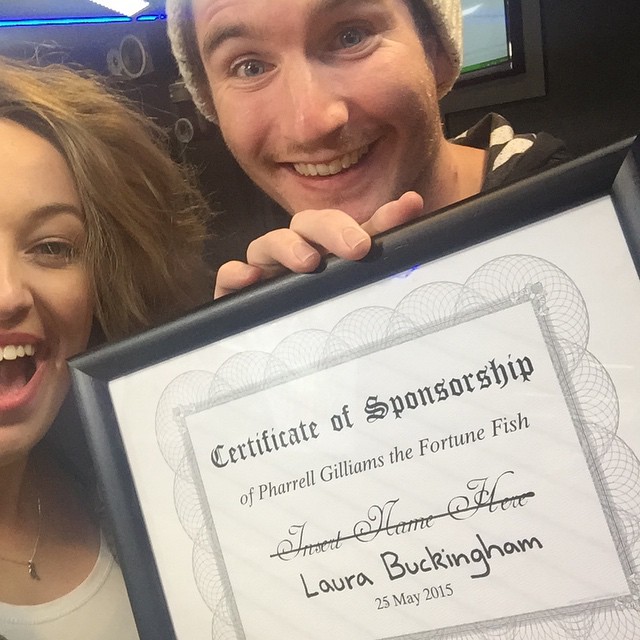 Certificate of Sponsorship
of Pharrell Gilliams the Fortune Fish
Insert Name Here
Laura Buckingham
25 May 2015